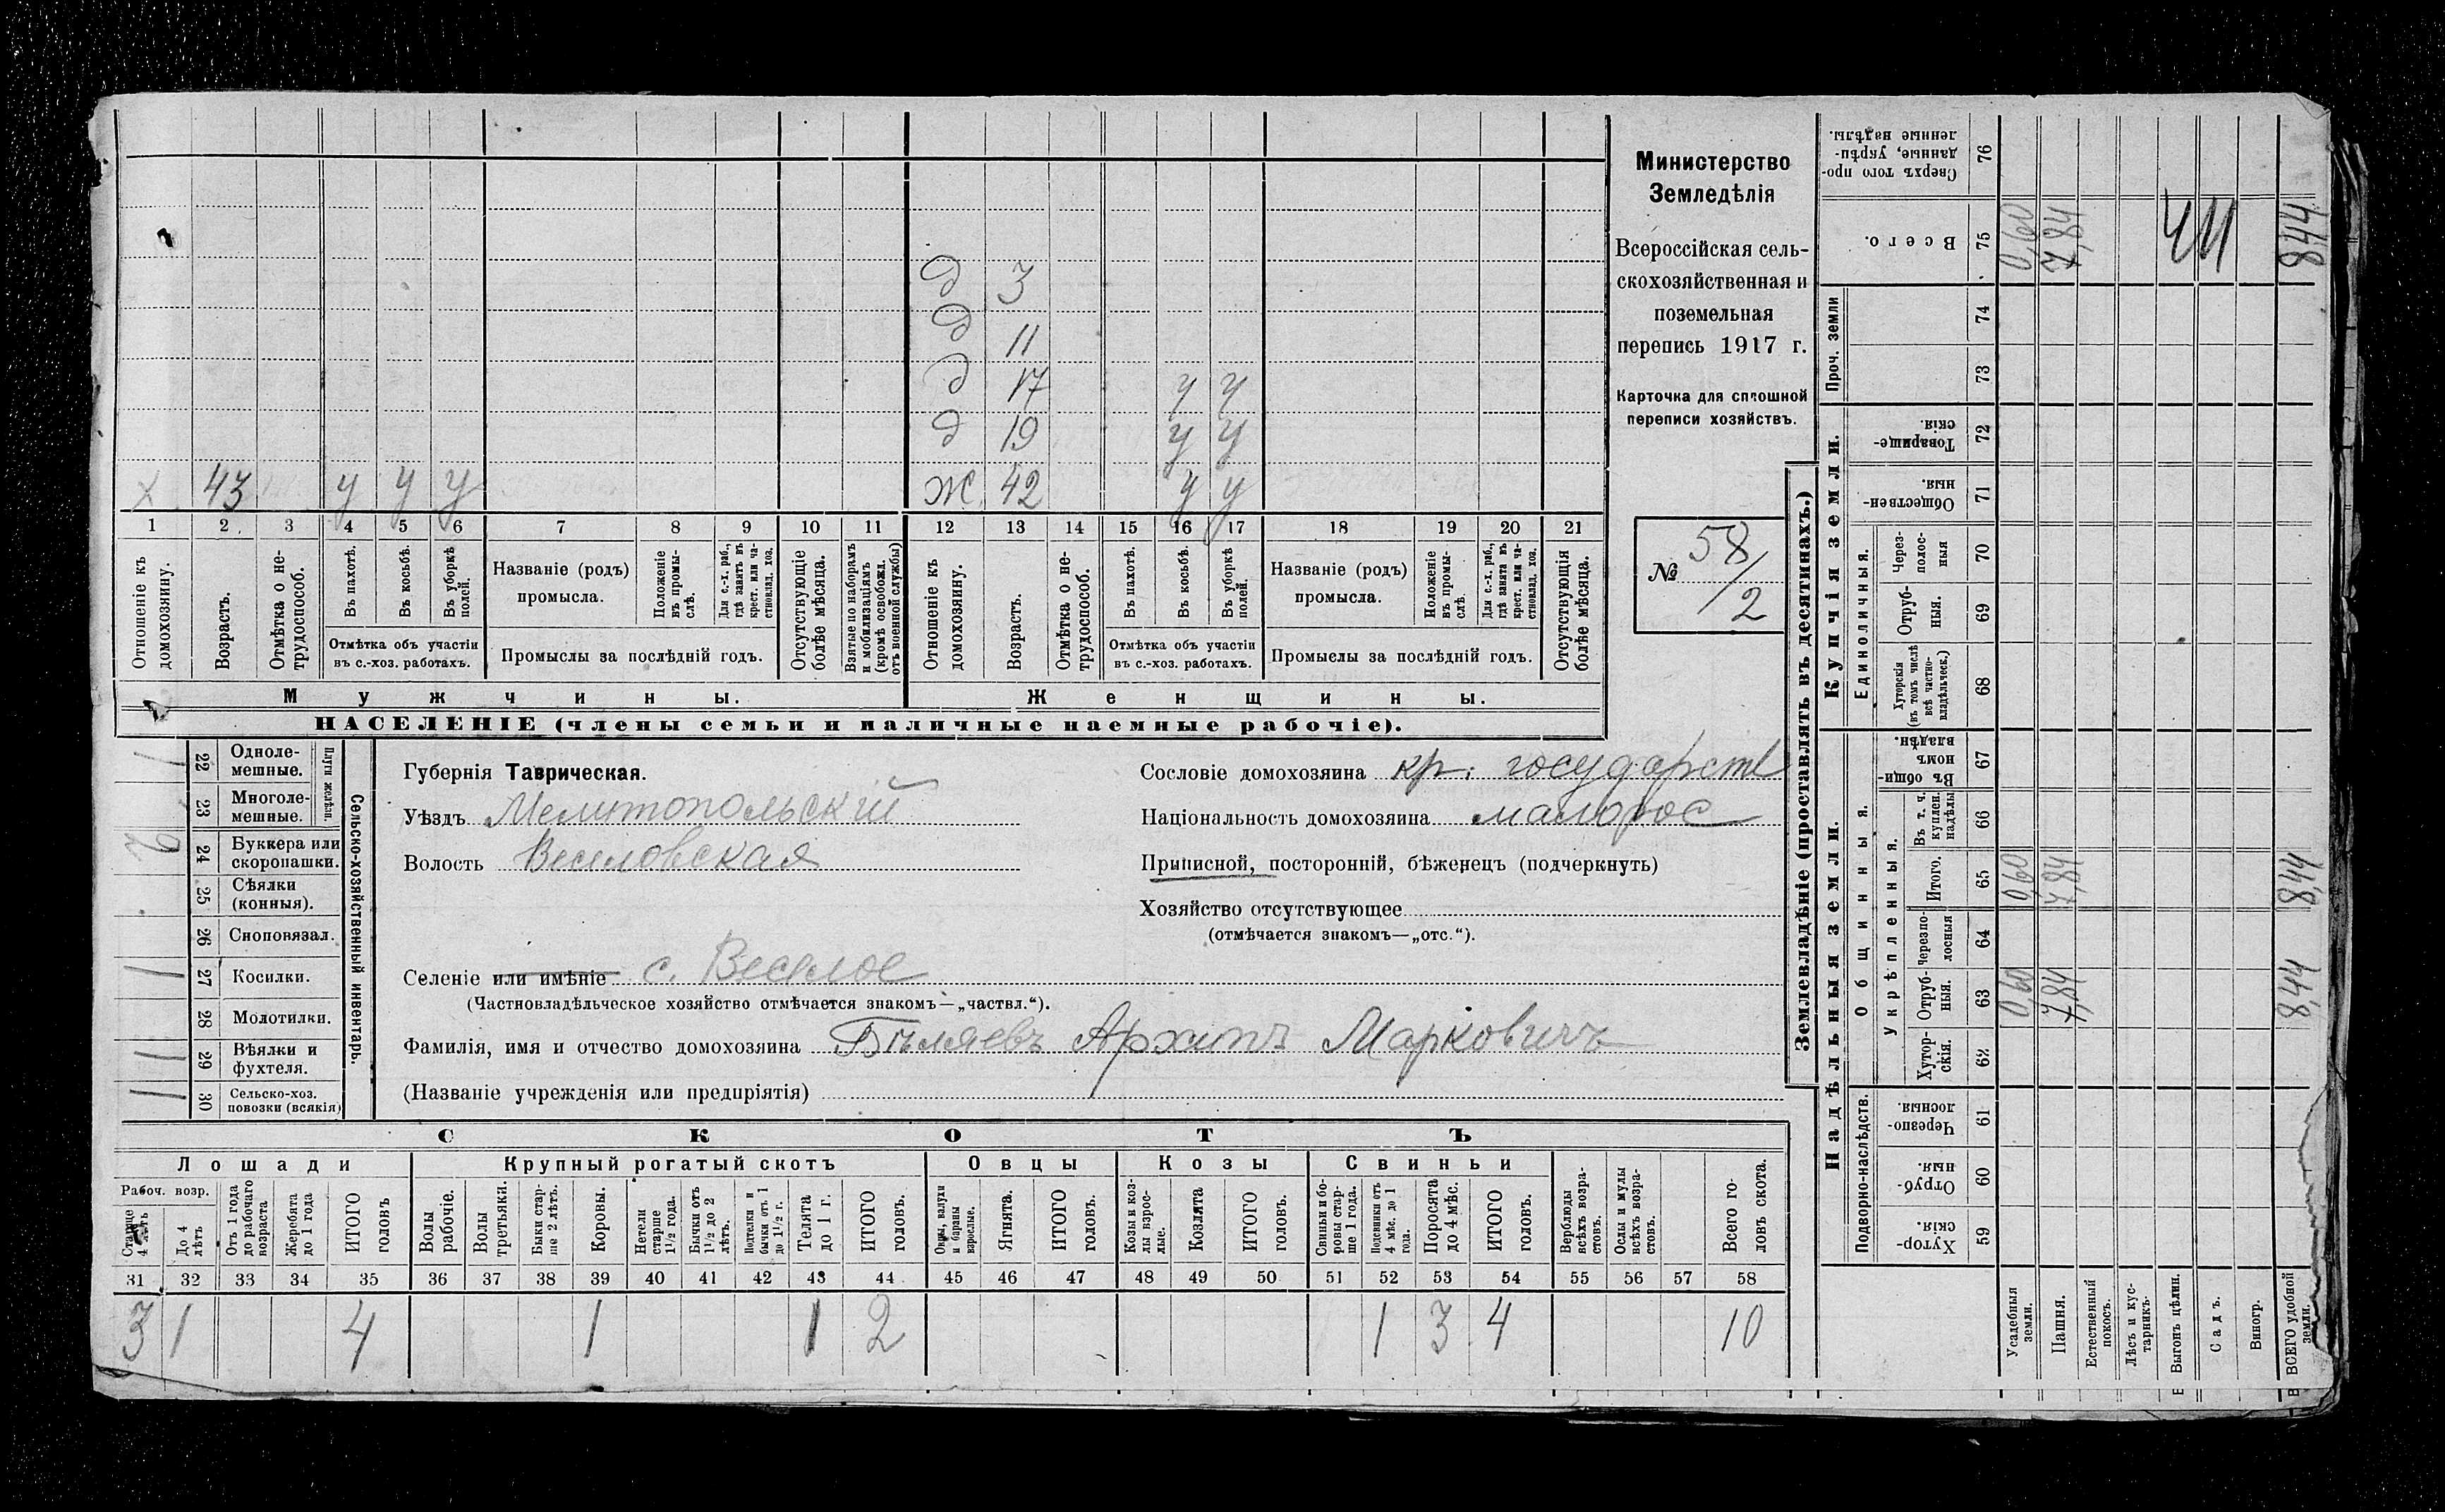 д 3
д 11
д 17 у у
д 19 у у
х 43 у у у ж 42 у у
1 2 3 4 5 6 7 8 9 10 11 12 13 14 15 16 17 18 19 20 21
Отношеніе къ домохозяину.
Возрастъ.
Отмѣтка о не-трудоспособ.
Въ пахотѣ.
Въ косьбѣ.
Въ уборкѣ полей.
Отмѣтка объ участіи въ с.-хоз. работахъ.
Названіе (родъ) промысла.
Положеніе въ промы-слѣ.
Для с.-х. раб., гдѣ занятъ въ крест. или ча-стновлад. хоз.
Промыслы за послѣдній годъ.
Отсутствующіе болѣе мѣсяца.
Взятые по наборамъ и мобилизаціямъ (кромѣ освобожд. отъ военной службы)
Отношеніе къ домохозяину.
Возрастъ.
Отмѣтка о не-трудоспособ.
Въ пахотѣ.
Въ косьбѣ.
Въ уборкѣ полей.
Отмѣтка объ участіи въ с.-хоз. работахъ.
Названіе (родъ) промысла.
Положеніе въ промы-слѣ.
Для с.-х. раб., гдѣ занята въ крест. или ча-стновлад. хоз.
Промыслы за послѣдній годъ.
Отсутствующія болѣе мѣсяца.
Мужчины.
Женщины.
НАСЕЛЕНІЕ (члены семьи и наличные наемные рабочіе).
Министерство
Земледѣлія
Всероссійская сель-
скохозяйственная и
поземельная
перепись 1917 г.
Карточка для сплошной
переписи хозяйствъ.
№ 58/2
Сельско-хозяйственный инвентарь.
Плуги желѣзн.
1 22 Одноле-мешные.
23 Многоле-мешные.
2 24 Буккера или скоропашки.
25 Сѣялки (конныя).
26 Сноповязал.
1 27 Косилки.
28 Молотилки.
1 29 Вѣялки и фухтеля.
1 30 Сельско-хоз. повозки (всякія)
Губернія Таврическая.
Уѣздъ Мелитопольскій
Волость Веселовская
Селеніе или имѣніе с. Веселое
(Частновладѣльческое хозяйство отмѣчается знакомъ—„частвл.“).
Фамилія, имя и отчество домохозяина Бѣляевъ Архипъ Марковичъ
(Названіе учрежденія или предпріятія)
Сословіе домохозяина кр. государств
Національность домохозяина малорос
Приписной, посторонній, бѣженецъ (подчеркнуть)
Хозяйство отсутствующее
(отмѣчается знакомъ—„отс.“).
СКОТЪ
Лошади
Крупный рогатый скотъ
Овцы
Козы
Свиньи
Рабоч. возр.
Старше 4 лѣтъ
До 4 лѣтъ
Отъ 1 года до рабочаго возраста
Жеребята до 1 года
ИТОГО головъ
Волы рабочіе.
Волы третьяки.
Быки стар-ше 2 лѣтъ.
Коровы.
Нетели старше 1½ года.
Бычки отъ 1½ до 2 лѣтъ.
Подтелки и бычки отъ 1 до 1½ г.
Телята до 1 г.
ИТОГО головъ.
Овцы, валухи и бараны взрослые.
Ягнята.
ИТОГО головъ.
Козы и коз-лы взрос-лые.
Козлята
ИТОГО головъ.
Свиньи и бо-ровы стар-ше 1 года.
Подсвинки отъ 4 мѣс. до 1 года.
Поросята до 4 мѣс.
ИТОГО головъ.
Верблюды всѣхъ возра-стовъ.
Ослы и мулы всѣхъ возра-стовъ.
Всего го-ловъ скота.
31 32 33 34 35 36 37 38 39 40 41 42 43 44 45 46 47 48 49 50 51 52 53 54 55 56 57 58
3 1 4 1 1 2 1 3 4 10
Землевладѣніе (проставлять въ десятинахъ.)
Купчія земли.
Надѣльныя земли.
Проч. земли
Единоличныя.
Общинныя.
Укрѣпленныя.
Подворно-наслѣдств.
Сверхъ того про-данные, укрѣп-ленные надѣлы. 76
Всего. 75 0,60 7,84 8,44
ЧП
74
73
Товарище-скія. 72
Обществен-ныя. 71
Через-полос-ныя 70
Отруб-ныя. 69
Хуторскія (въ томъ числѣ всѣ частно-владѣльческ.) 68
Въ общин-номъ владѣн. 67
Въ т. ч. куплен. надѣлы 66
Итого. 65 0,60 7,84 8,44
Черезпо-лосныя 64
Отруб-ныя. 63 0,60 7,84 8,44
Хутор-скія. 62
Черезпо-лосныя 61
Отруб-ныя. 60
Хутор-скія. 59
Усадебныя земли.
Пашня.
Естественный покосъ.
Лѣсъ и кус-тарникъ.
Выгонъ цѣлин.
Садъ.
Виногр.
ВСЕГО удобной земли.